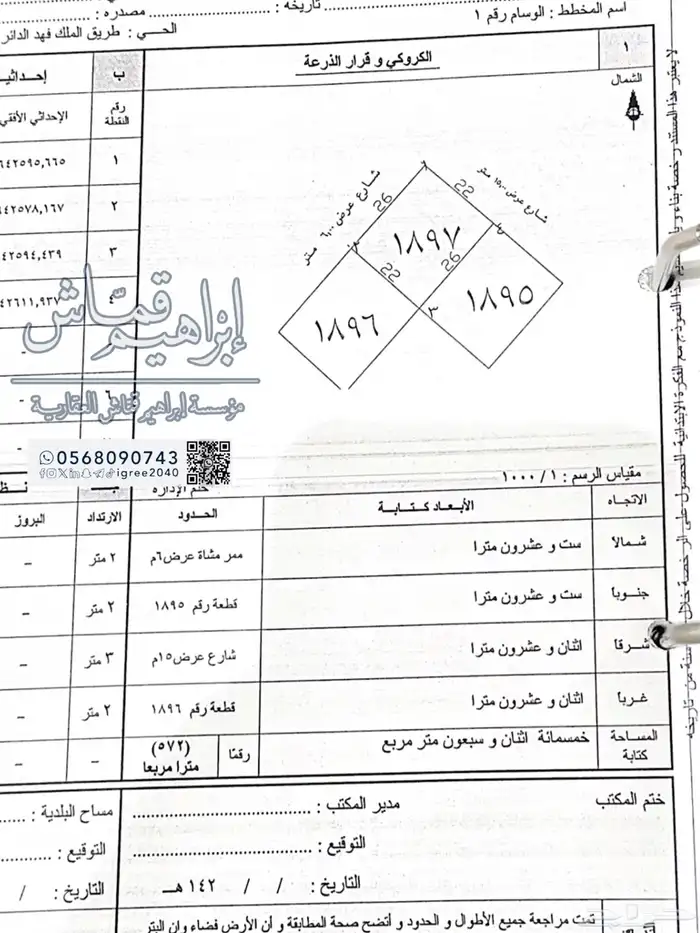 اسم المخطط : الوسام رقم ١ تاريخه : مصدره :
الحي : طريق الملك فهد الدائر
١ الكروكي و قرار الذرعة
ب إحداثي
رقم النقطة الإحداثي الأفقي
الشمال
١ ٦٤٢٥٩٥,٦٦٥
٢ ٦٤٢٥٧٨,١٦٧
٣ ٤٢٥٩٤,٤٣٩
٤ ٤٢٦١١,٩٣٧
شارع عرض ٦,٠٠ متر
26
22
شارع عرض ١٥,٠٠ متر
١٨٩٧
22
26
٣
١٨٩٦
١٨٩٥
إبراهيم قمّاش
مؤسسة ابراهيم قماش العقارية
0568090743
igree2040
مقياس الرسم : ١ / ١٠٠٠
ختم الإدارة
الاتجاه الأبعاد كتابة الحدود الارتداد البروز
شمالا ست و عشرون مترا ممر مشاة عرض ٦م ٢ متر –
جنوبا ست و عشرون مترا قطعة رقم ١٨٩٥ ٢ متر –
شرقا اثنان و عشرون مترا شارع عرض ١٥م ٣ متر –
غربا اثنان و عشرون مترا قطعة رقم ١٨٩٦ ٢ متر –
المساحة كتابة خمسمائة اثنان و سبعون متر مربع رقمًا (٥٧٢) مترا مربعا – –
ختم المكتب مدير المكتب : مساح البلدية :
التوقيع : التوقيع :
التاريخ : / / ١٤٢ هـ التاريخ : /
تمت مراجعة جميع الأطوال و الحدود و أتضح صحة المطابقة و أن الأرض فضاء وان البتر